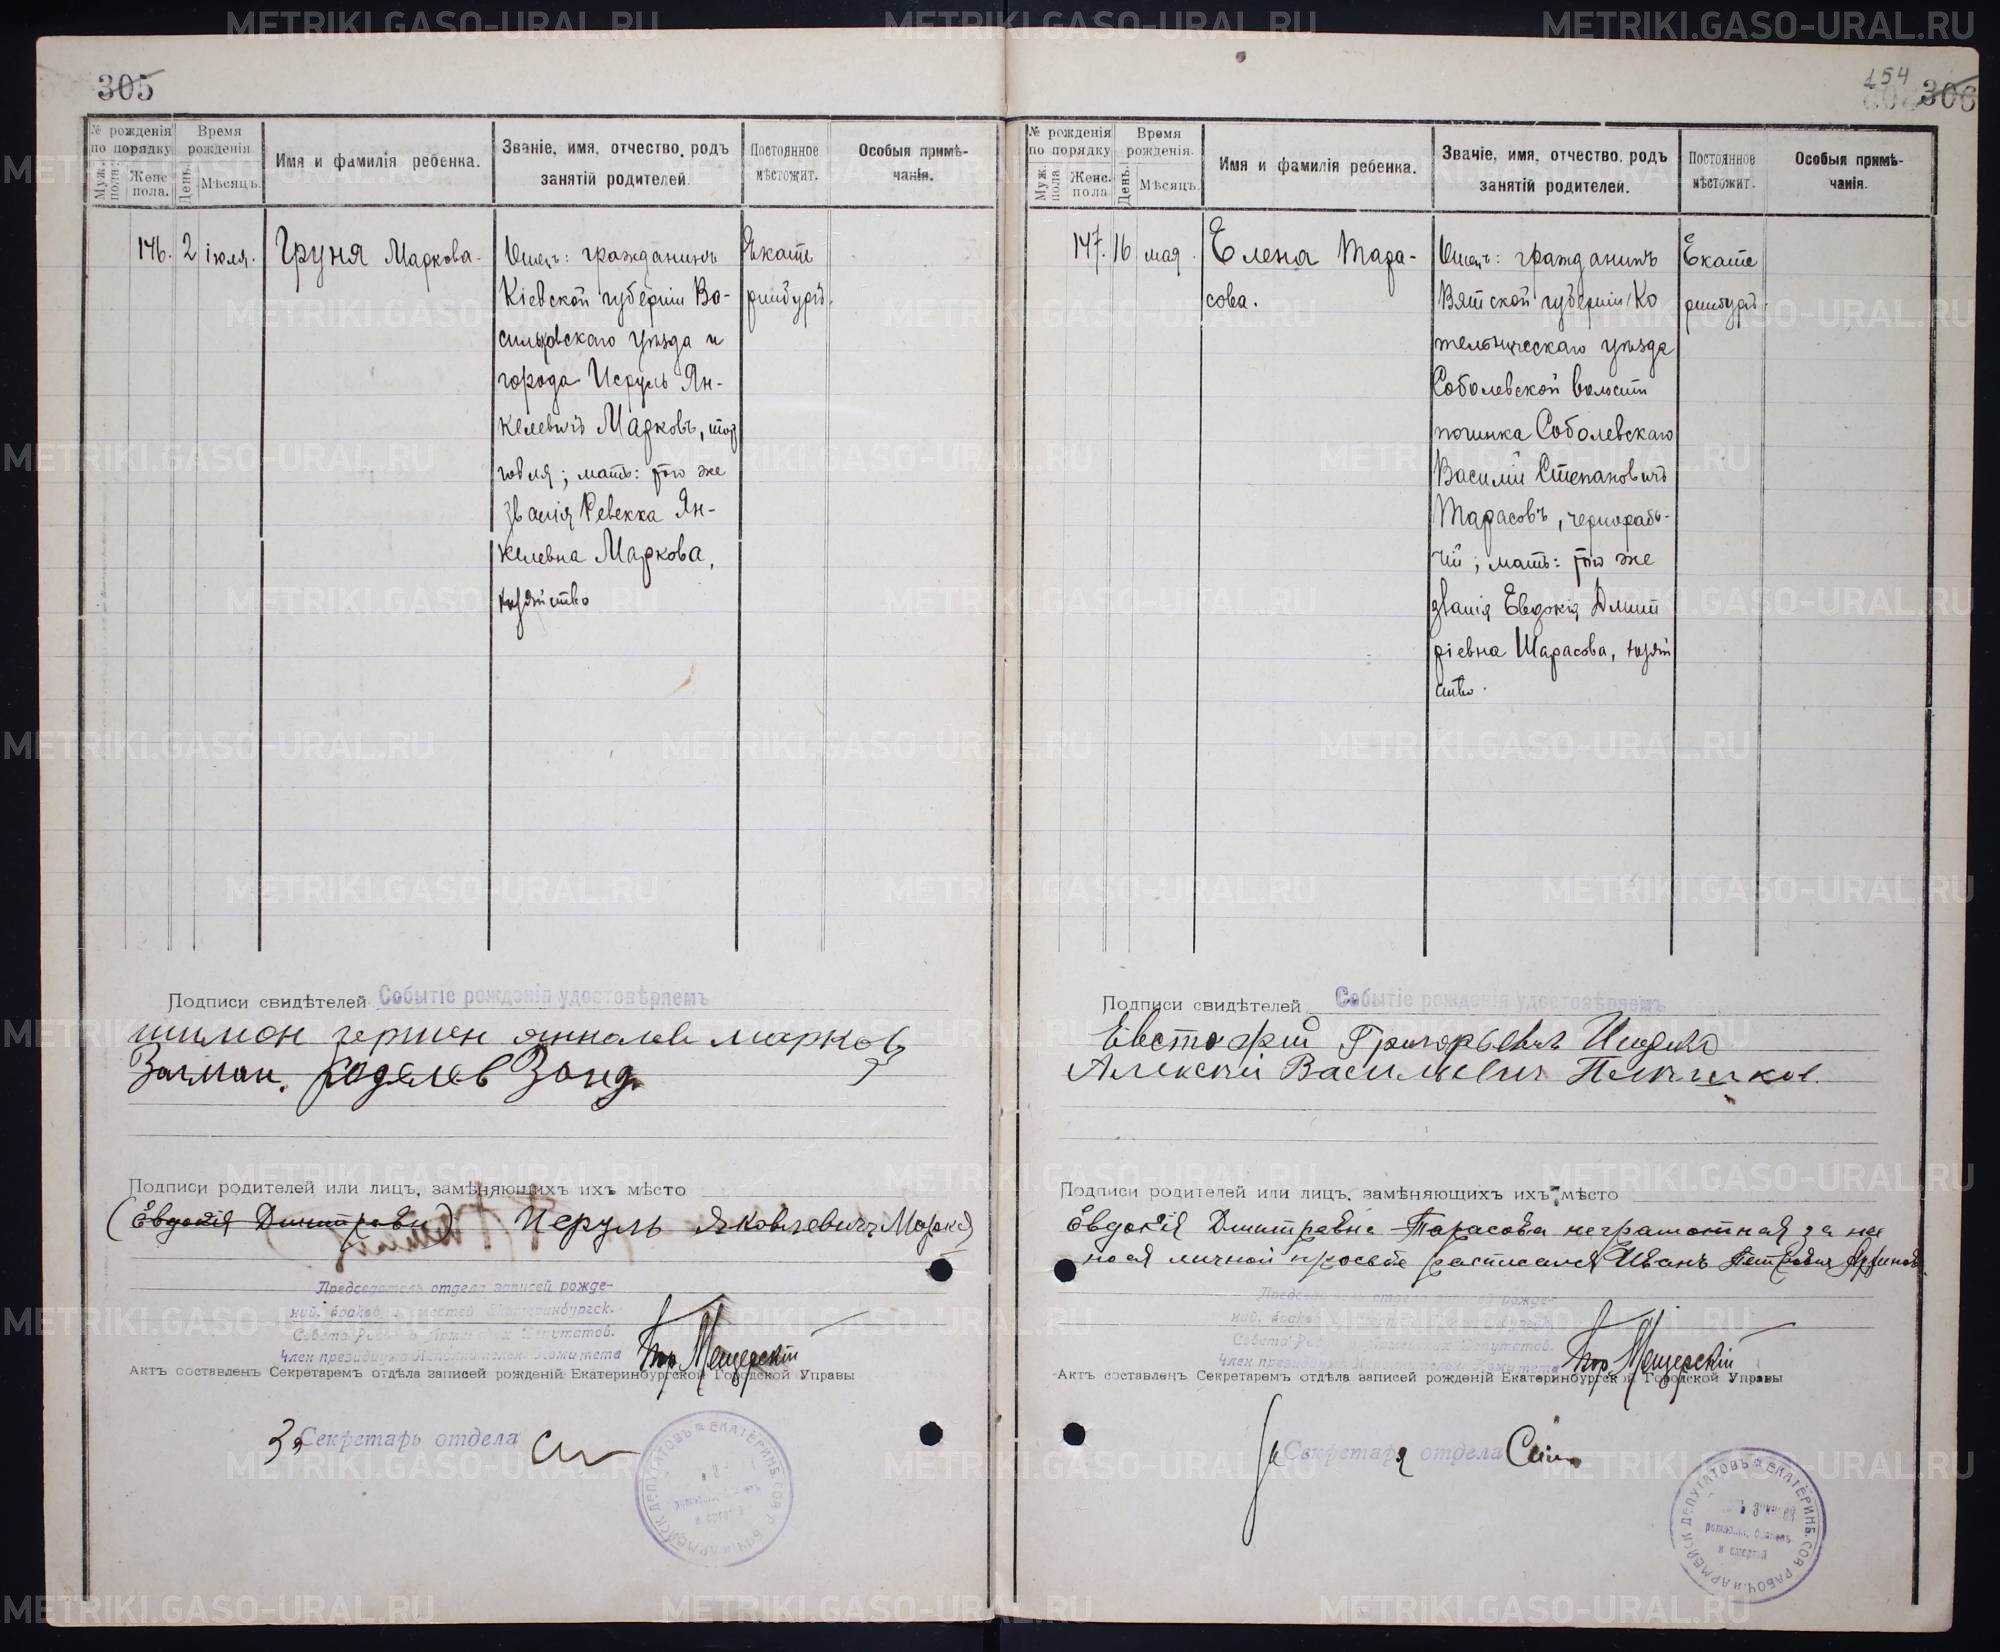 305
№ рожденія по порядку
Муж. пола.
Женс. пола.
Время рожденія.
День.
Мѣсяцъ.
Имя и фамилія ребенка.
Званіе, имя, отчество, родъ занятій родителей.
Постоянное мѣстожит.
Особыя примѣчанія.
146. 2 іюля.
Груня Маркова.
Отецъ: гражданинъ
Кіевской губерніи Ва-
сильковскаго уѣзда и
города Исруль Ян-
келевичъ Марковъ, тор
говля; мать: того же
званія Ревекка Ян-
келевна Маркова,
хозяйство
Екате
ринбургъ.
Подписи свидѣтелей Событіе рожденія удостовѣряемъ
шимон гершен янкелев марков
Залман
Подписи родителей или лицъ, замѣняющихъ ихъ мѣсто
(Евдокія Дмитревн) Исруль Яковлевичъ
Председатель отдела записей рожде-
ний, браков и смертей Екатеринбургск.
Совета Рабоч. и Армейских Депутатов.
Член президиума Исполнительн. Комитета
Мещерскій
Актъ составленъ Секретаремъ отдѣла записей рожденій Екатеринбургской Городской Управы
За Секретарь отдела
ЕКАТЕРИНБ. СОВ. РАБОЧ. и АРМЕЙСК. ДЕПУТАТОВЪ
154
306
№ рожденія по порядку
Муж. пола
Женс. пола
Время рожденія.
День.
Мѣсяцъ.
Имя и фамилія ребенка.
Званіе, имя, отчество, родъ занятій родителей.
Постоянное мѣстожит.
Особыя примѣчанія.
147. 16 мая.
Елена Тара-
сова.
Отецъ: гражданинъ
Вятской губерніи Ко
тельническаго уѣзда
Соболевской волости
починка Соболевскаго
Василій Степановичъ
Тарасовъ, чернорабо-
чій; мать: того же
званія Евдокія Дмит
ріевна Тарасова, хозяй
ство.
Екате
ринбургъ.
Подписи свидѣтелей Событіе рожденія удостовѣряемъ
Евстафій Григорьевичъ
Алексій Васильевич
Подписи родителей или лицъ, замѣняющихъ ихъ мѣсто
Евдокія Дмитревна Тарасова неграмотная за нее
по ея личной просьбе расписался Иванъ Петрович
Председатель отдела записей рожде-
ний, браков и смертей Екатеринбургск.
Совета Рабоч. и Армейских Депутатов.
Член президиума Исполнительн. Комитета
Мещерскій
Актъ составленъ Секретаремъ отдѣла записей рожденій Екатеринбургской Городской Управы
За Секретаря отдела
ЕКАТЕРИНБ. СОВ. РАБОЧ. и АРМЕЙСК. ДЕПУТАТОВЪ
METRIKI.GASO-URAL.RU